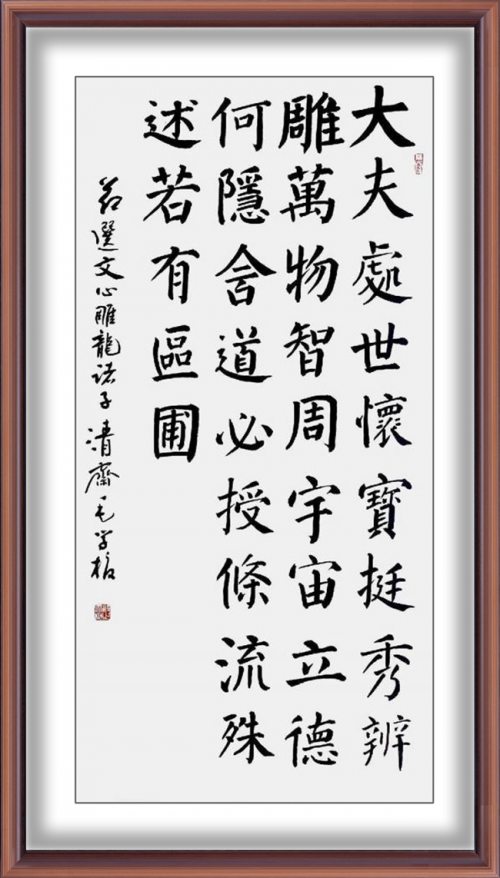 大夫處世懷寶挺秀辨
雕萬物智周宇宙立德
何隱舍道必授條流殊
述若有區圃
节選文心雕龍诸子 清齋毛学